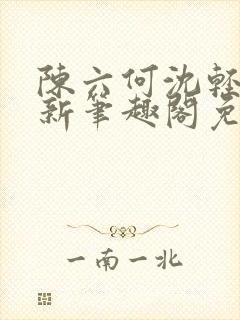 陳六何沈輕
新筆趣閣免
一南一北